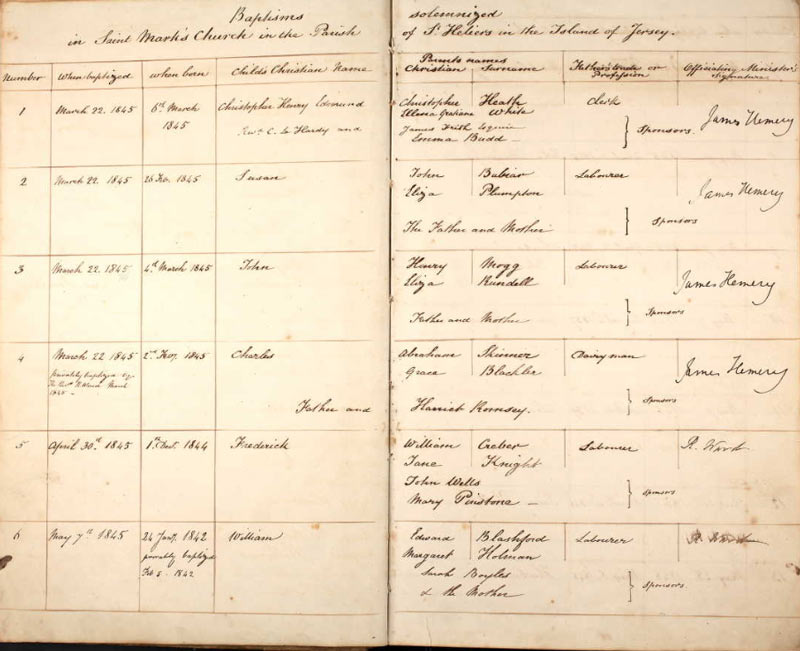 Baptisms solemnized
in Saint Mark's Church in the Parish of St Heliers in the Island of Jersey.
Number When baptized when born Childs Christian Name Parents names Christian Surname Father's trade or Profession Officiating Minister's Signature
1 March 22. 1845 6th March 1845 Christopher Henry Edmund Christopher Heath Clerk James Hemery
Ellena Grahame White
Revd C. Le Hardy and James Frith Esquire Sponsors.
Emma Budd
2 March 22. 1845 26 Feb. 1845 Susan John Labourer James Hemery
Eliza Plumpton
The Father and Mother Sponsors
3 March 22. 1845 4th March 1845 John Henry Mogg Labourer James Hemery
Eliza Rundell
Father and Mother Sponsors
4 March 22 1845 2nd Feby. 1845 Charles Abraham Skinner Dairyman James Hemery
privately baptized by Grace Blackler
the Revd March
1845
Father and Harriet Romsey. Sponsors
5 April 30th 1845 1844 Frederick William Creber Labourer
Jane Knight
John Wells
Mary Sponsors
6 May 7th 1845 24 Jany. 1842 William Edward Blashford Labourer
privately baptized Margaret Holman
Feb 5. 1842 Sarah Boyles
& the Mother Sponsors